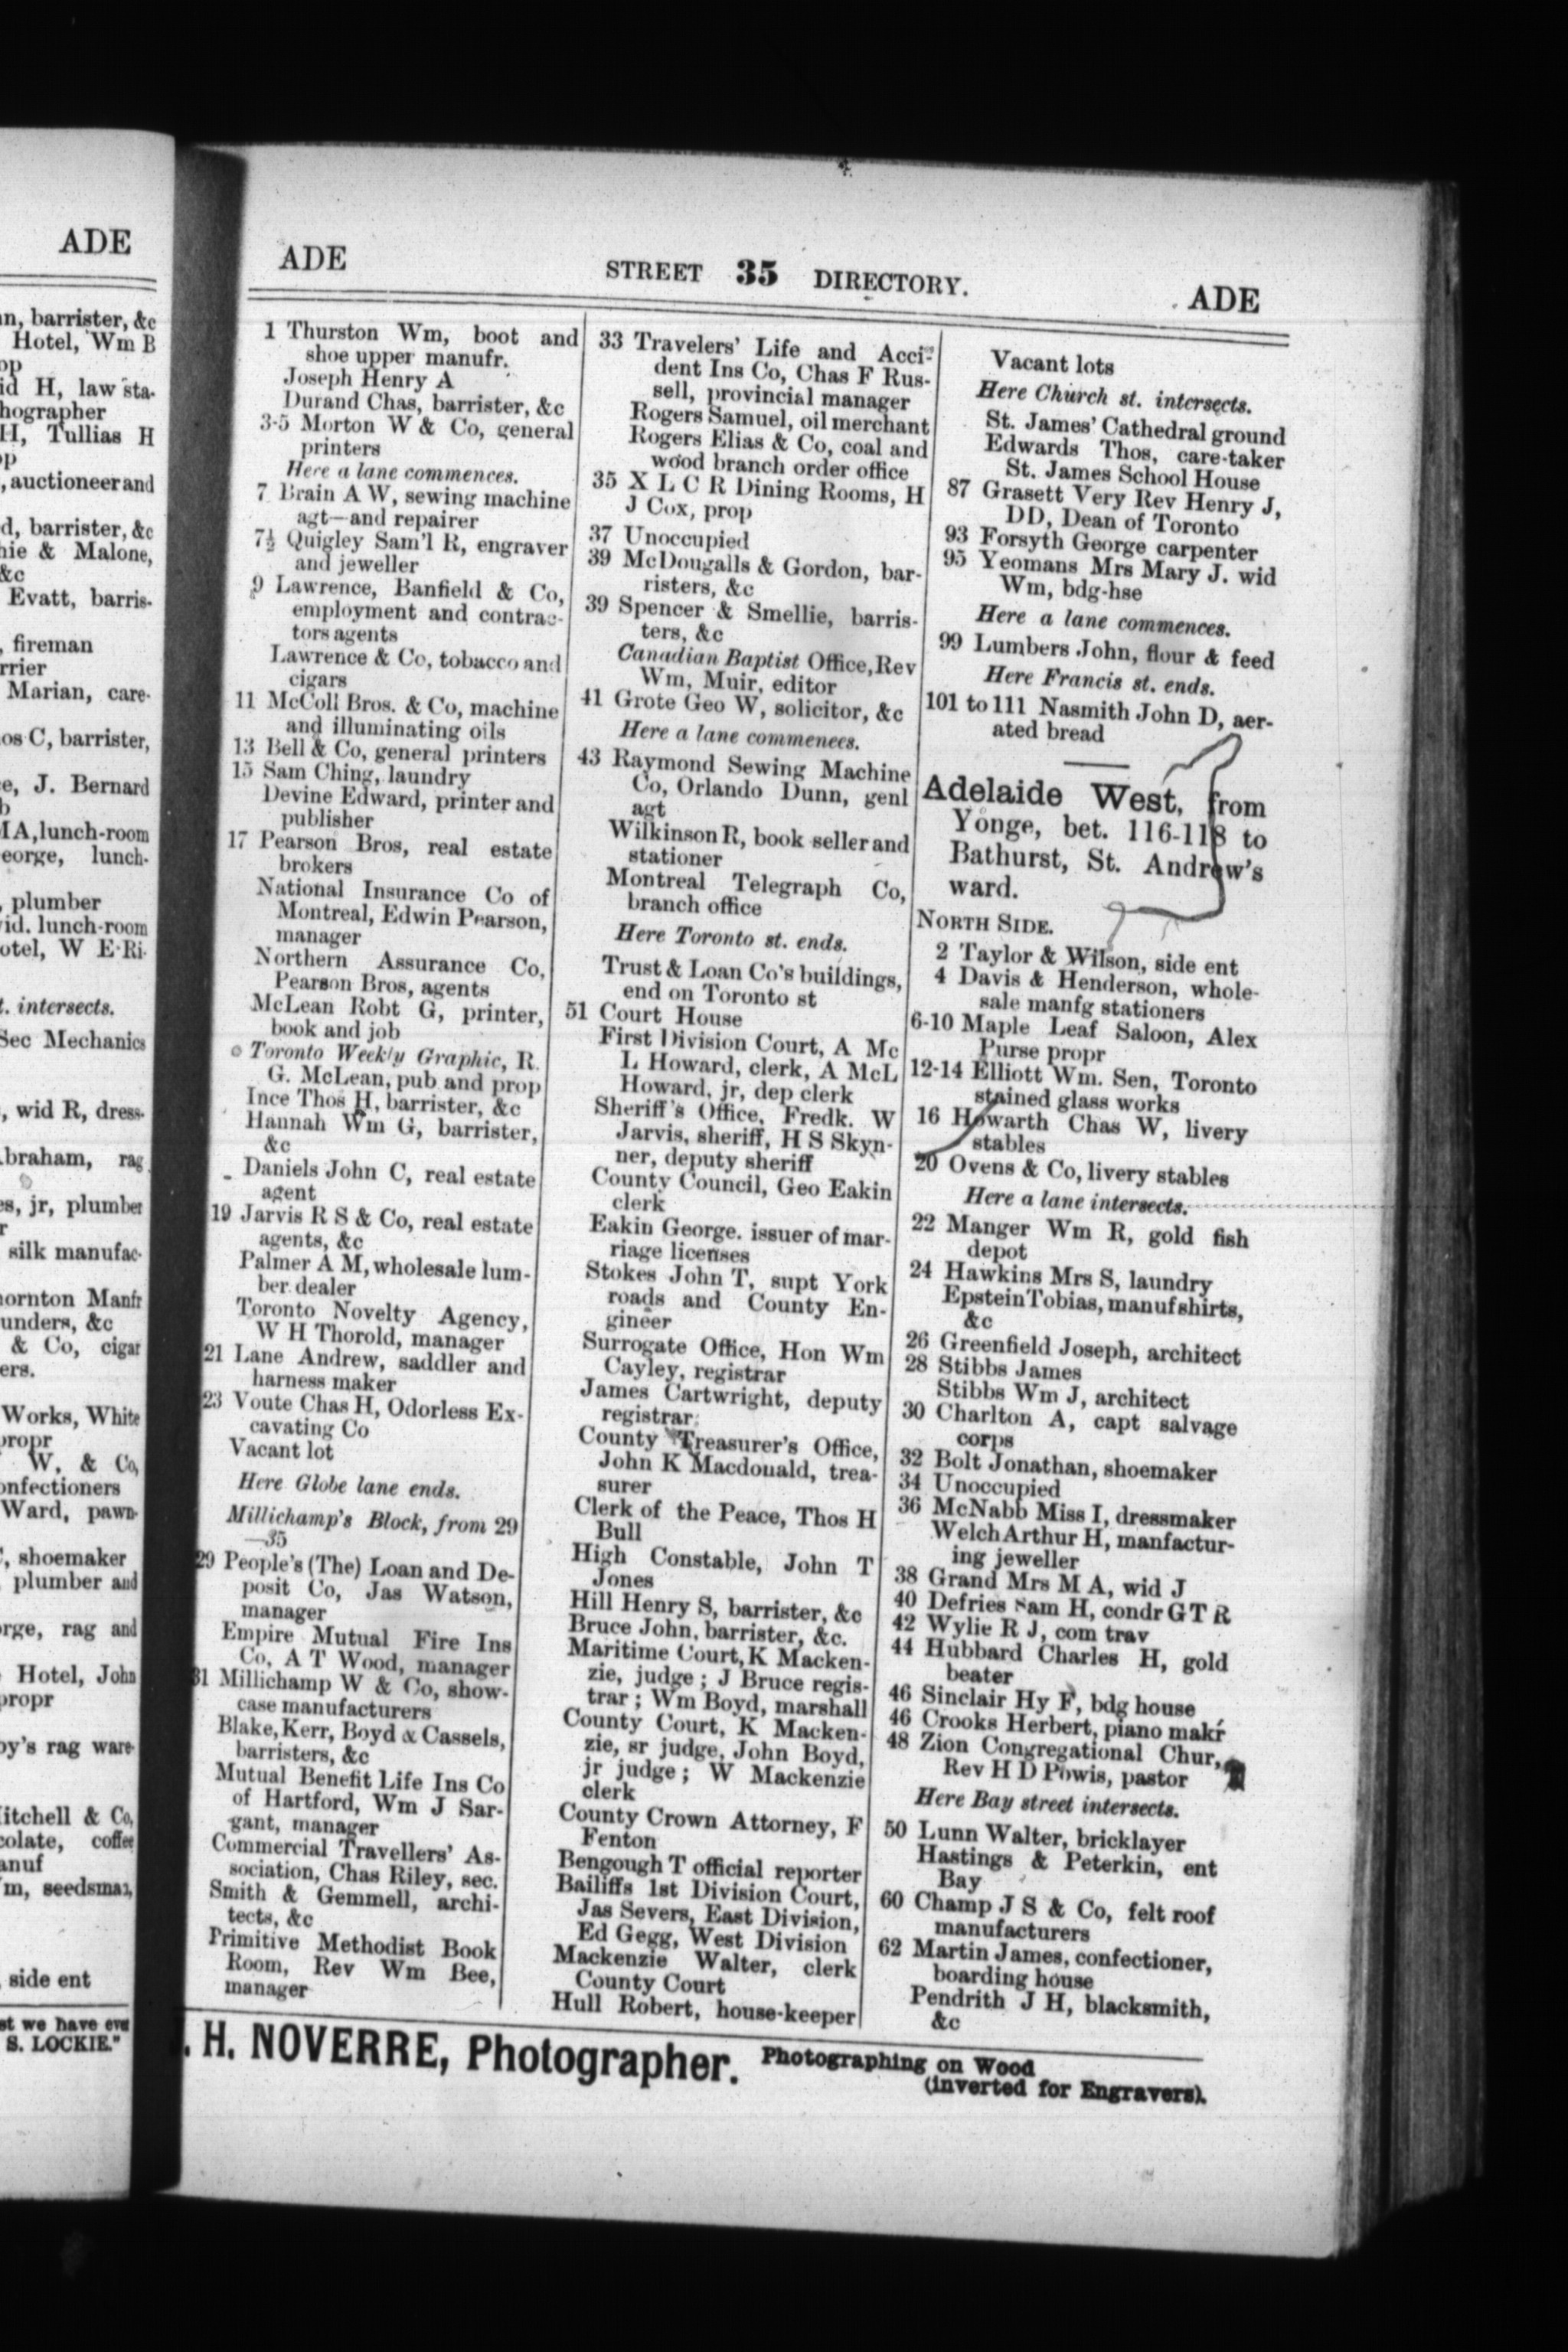 ADE
n, barrister, &c
Hotel, Wm B
op
id H, law sta-
hographer
H, Tullias H
op
, auctioneer and
d, barrister, &c
hie & Malone,
&c
Evatt, barris-
, fireman
rrier
Marian, care-
os C, barrister,
e, J. Bernard
b
IA, lunch-room
eorge, lunch-
, plumber
id. lunch-room
otel, W E Ri-
t. intersects.
Sec Mechanics
, wid R, dress-
braham, rag
es, jr, plumber
r
silk manufac-
hornton Manfr
unders, &c
& Co, cigar
ers.
Works, White
propr
W. & Co,
onfectioners
Ward, pawn-
, shoemaker
plumber and
rge, rag and
Hotel, John
propr
by's rag ware-
litchell & Co,
colate, coffee
anuf
m, seedsman,
side ent
st we have eve
S. LOCKIE."
ADE STREET 35 DIRECTORY. ADE
1 Thurston Wm, boot and
shoe upper manufr.
Joseph Henry A
Durand Chas, barrister, &c
3-5 Morton W & Co, general
printers
Here a lane commences.
7 Brain A W, sewing machine
agt—and repairer
7½ Quigley Sam'l R, engraver
and jeweller
9 Lawrence, Banfield & Co,
employment and contrac-
tors agents
Lawrence & Co, tobacco and
cigars
11 McColl Bros. & Co, machine
and illuminating oils
13 Bell & Co, general printers
15 Sam Ching, laundry
Devine Edward, printer and
publisher
17 Pearson Bros, real estate
brokers
National Insurance Co of
Montreal, Edwin Pearson,
manager
Northern Assurance Co,
Pearson Bros, agents
McLean Robt G, printer,
book and job
Toronto Weekly Graphic, R.
G. McLean, pub and prop
Ince Thos H, barrister, &c
Hannah Wm G, barrister,
&c
Daniels John C, real estate
agent
19 Jarvis R S & Co, real estate
agents, &c
Palmer A M, wholesale lum-
ber dealer
Toronto Novelty Agency,
W H Thorold, manager
21 Lane Andrew, saddler and
harness maker
23 Voute Chas H, Odorless Ex-
cavating Co
Vacant lot
Here Globe lane ends.
Millichamp's Block, from 29
—35
29 People's (The) Loan and De-
posit Co, Jas Watson,
manager
Empire Mutual Fire Ins
Co, A T Wood, manager
31 Millichamp W & Co, show-
case manufacturers
Blake, Kerr, Boyd & Cassels,
barristers, &c
Mutual Benefit Life Ins Co
of Hartford, Wm J Sar-
gant, manager
Commercial Travellers' As-
sociation, Chas Riley, sec.
Smith & Gemmell, archi-
tects, &c
Primitive Methodist Book
Room, Rev Wm Bee,
manager
33 Travelers' Life and Acci-
dent Ins Co, Chas F Rus-
sell, provincial manager
Rogers Samuel, oil merchant
Rogers Elias & Co, coal and
wood branch order office
35 X L C R Dining Rooms, H
J Cox, prop
37 Unoccupied
39 McDougalls & Gordon, bar-
risters, &c
39 Spencer & Smellie, barris-
ters, &c
Canadian Baptist Office, Rev
Wm, Muir, editor
41 Grote Geo W, solicitor, &c
Here a lane commences.
43 Raymond Sewing Machine
Co, Orlando Dunn, genl
agt
Wilkinson R, book seller and
stationer
Montreal Telegraph Co,
branch office
Here Toronto st. ends.
Trust & Loan Co's buildings,
end on Toronto st
51 Court House
First Division Court, A Mc
L Howard, clerk, A McL
Howard, jr, dep clerk
Sheriff's Office, Fredk. W
Jarvis, sheriff, H S Skyn-
ner, deputy sheriff
County Council, Geo Eakin
clerk
Eakin George. issuer of mar-
riage licenses
Stokes John T, supt York
roads and County En-
gineer
Surrogate Office, Hon Wm
Cayley, registrar
James Cartwright, deputy
registrar
County Treasurer's Office,
John K Macdonald, trea-
surer
Clerk of the Peace, Thos H
Bull
High Constable, John T
Jones
Hill Henry S, barrister, &c
Bruce John, barrister, &c.
Maritime Court, K Macken-
zie, judge ; J Bruce regis-
trar ; Wm Boyd, marshall
County Court, K Macken-
zie, sr judge, John Boyd,
jr judge ; W Mackenzie
clerk
County Crown Attorney, F
Fenton
Bengough T official reporter
Bailiffs 1st Division Court,
Jas Severs, East Division,
Ed Gegg, West Division
Mackenzie Walter, clerk
County Court
Hull Robert, house-keeper
Vacant lots
Here Church st. intersects.
St. James' Cathedral ground
Edwards Thos, care-taker
St. James School House
87 Grasett Very Rev Henry J,
DD, Dean of Toronto
93 Forsyth George carpenter
95 Yeomans Mrs Mary J. wid
Wm, bdg-hse
Here a lane commences.
99 Lumbers John, flour & feed
Here Francis st. ends.
101 to 111 Nasmith John D, aer-
ated bread
Adelaide West, from
Yonge, bet. 116-118 to
Bathurst, St. Andrew's
ward.
NORTH SIDE.
2 Taylor & Wilson, side ent
4 Davis & Henderson, whole-
sale manfg stationers
6-10 Maple Leaf Saloon, Alex
Purse propr
12-14 Elliott Wm. Sen, Toronto
stained glass works
16 Howarth Chas W, livery
stables
20 Ovens & Co, livery stables
Here a lane intersects.
22 Manger Wm R, gold fish
depot
24 Hawkins Mrs S, laundry
Epstein Tobias, manuf shirts,
&c
26 Greenfield Joseph, architect
28 Stibbs James
Stibbs Wm J, architect
30 Charlton A, capt salvage
corps
32 Bolt Jonathan, shoemaker
34 Unoccupied
36 McNabb Miss I, dressmaker
Welch Arthur H, manfactur-
ing jeweller
38 Grand Mrs M A, wid J
40 Defries Sam H, condr G T R
42 Wylie R J, com trav
44 Hubbard Charles H, gold
beater
46 Sinclair Hy F, bdg house
46 Crooks Herbert, piano makr
48 Zion Congregational Chur,
Rev H D Powis, pastor
Here Bay street intersects.
50 Lunn Walter, bricklayer
Hastings & Peterkin, ent
Bay
60 Champ J S & Co, felt roof
manufacturers
62 Martin James, confectioner,
boarding house
Pendrith J H, blacksmith,
&c
. H. NOVERRE, Photographer. Photographing on Wood
(inverted for Engravers).